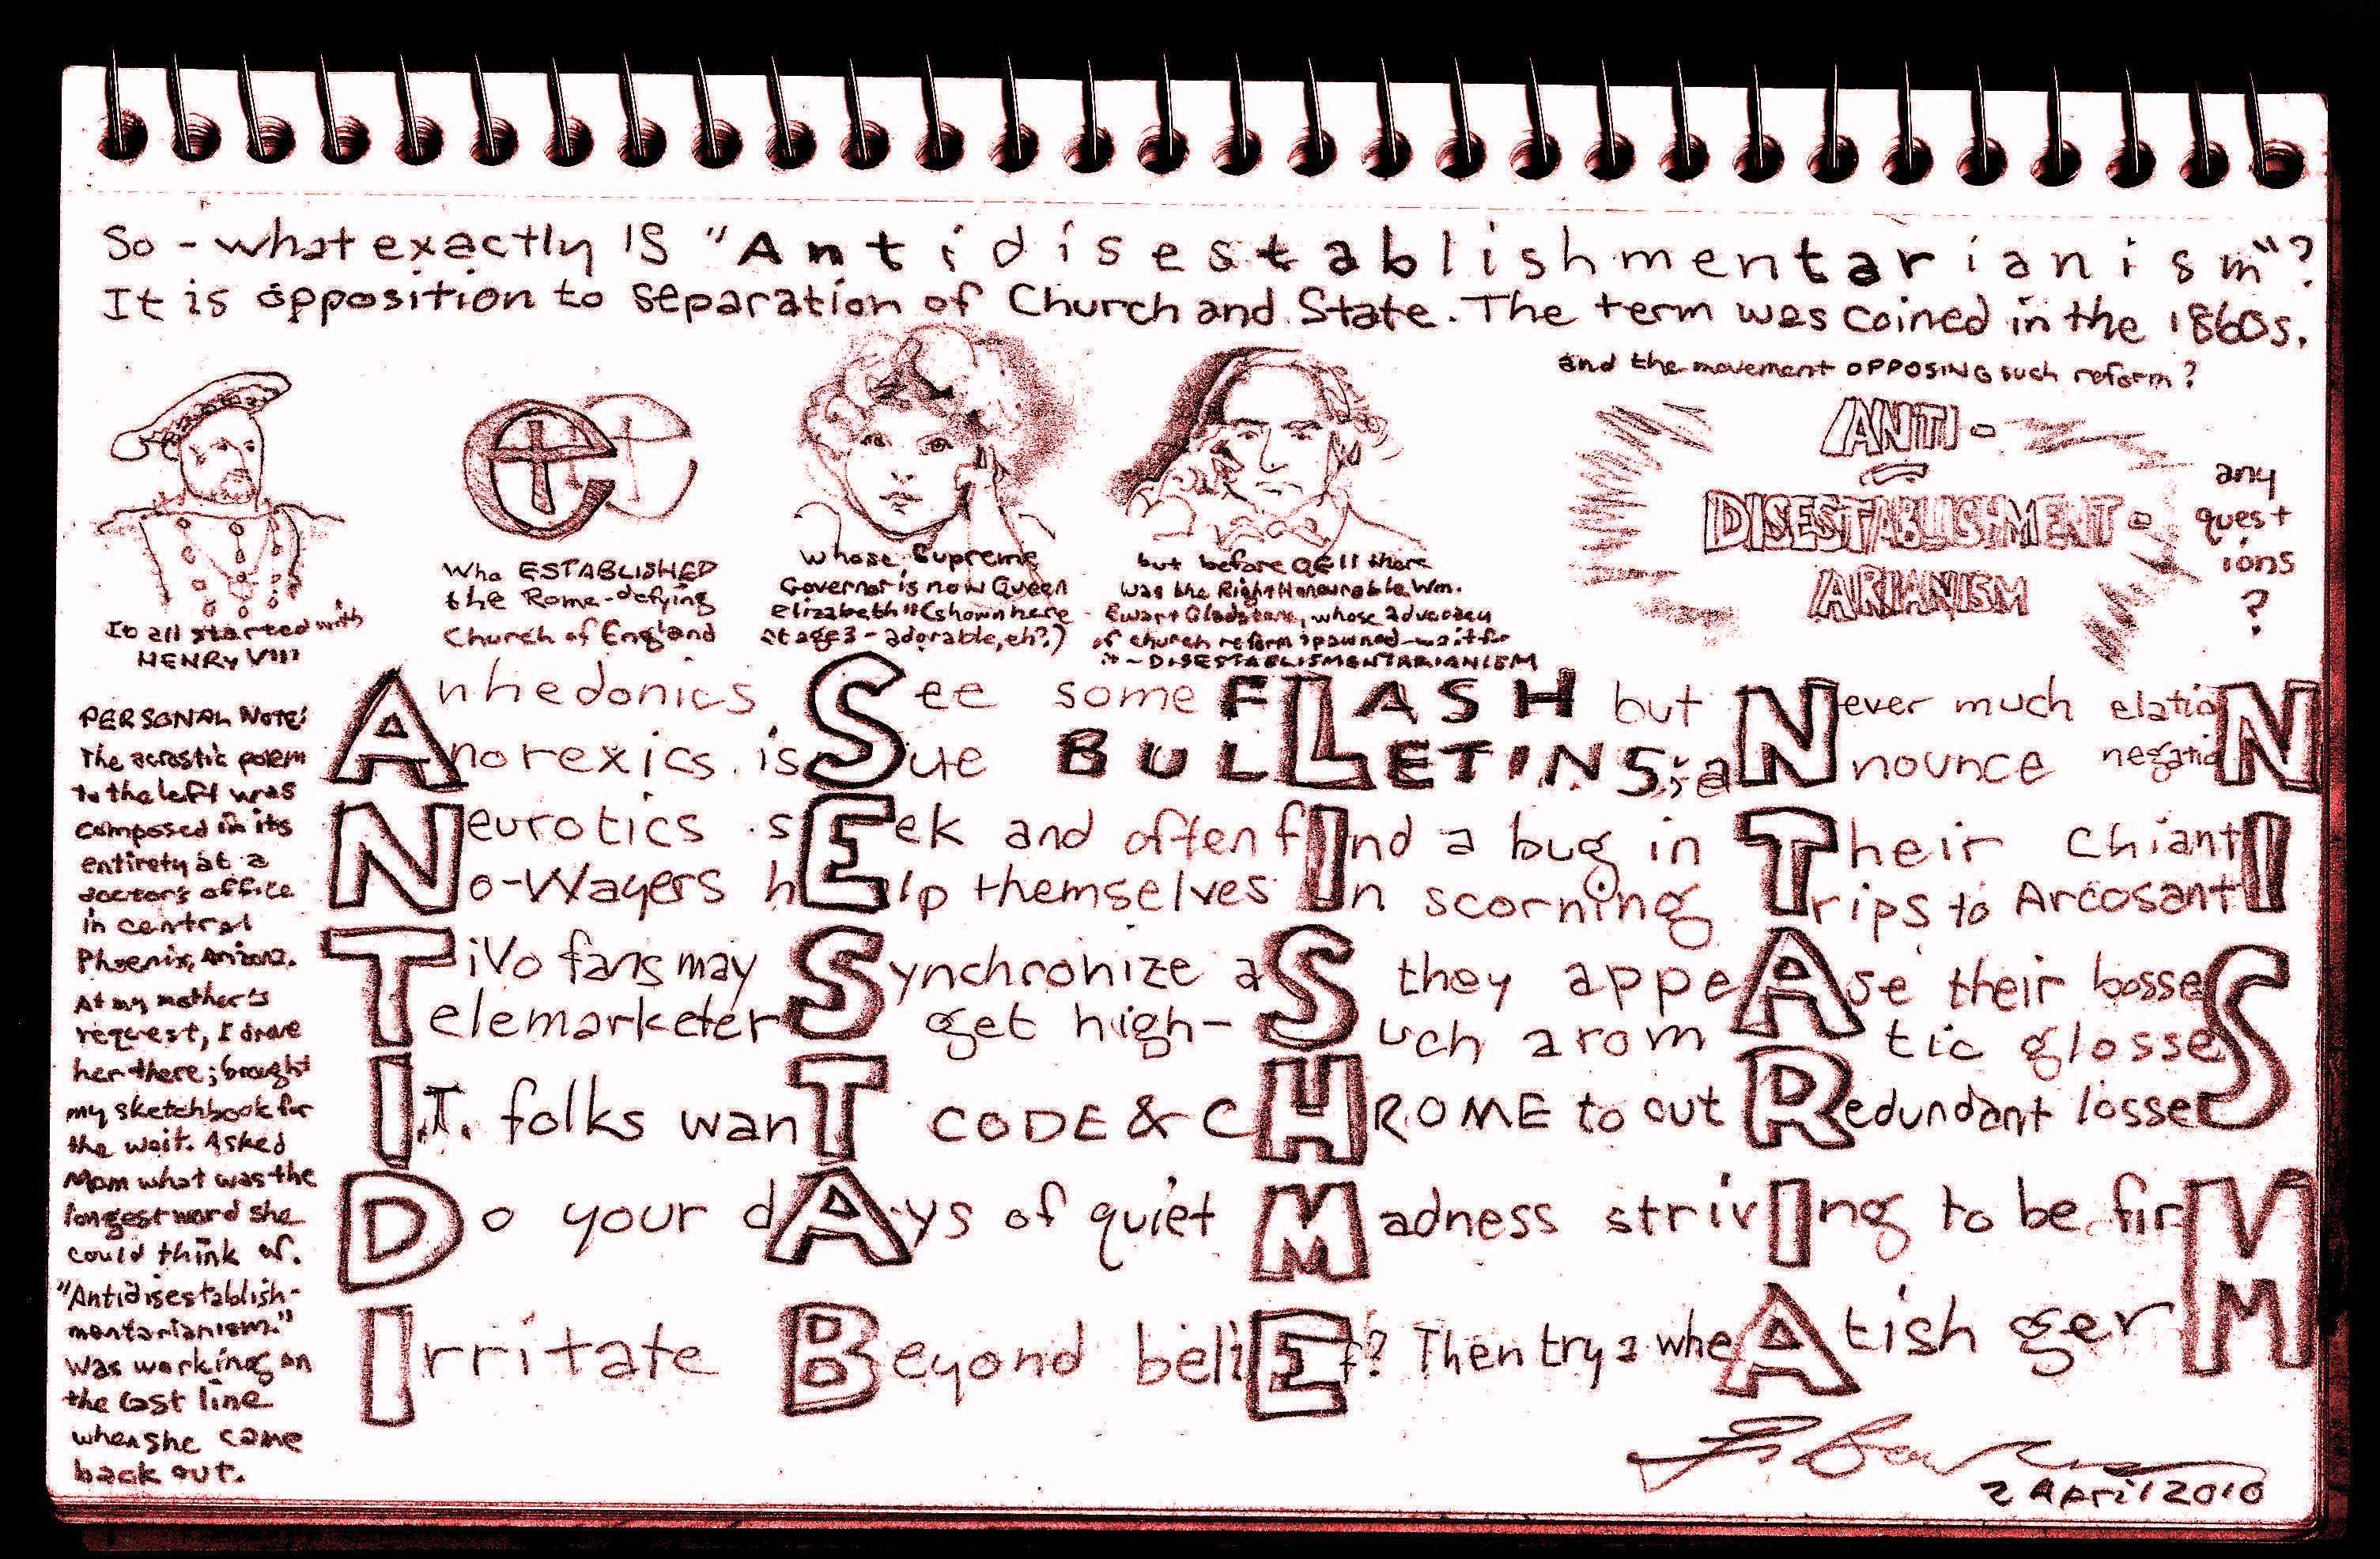 So - what exactly IS "Antidisestablishmentarianism"?
It is opposition to separation of Church and State. The term was coined in the 1860s.
It all started with
HENRY VIII
Who ESTABLISHED
the Rome-defying
Church of England
whose Supreme
Governor is now Queen
Elizabeth II (shown here
at age 3 - adorable, eh?)
but before QEII there
was the Right Honourable Wm.
Ewart Gladstone, whose advocacy
of church reform spawned - wait for
it - DISESTABLISMENTARIANISM
and the movement OPPOSING such reform?
ANTI-
DISESTABLISHMENT-
ARIANISM
any
quest
ions
?
PERSONAL NOTE:
The acrostic poem
to the left was
composed in its
entirety at a
doctor's office
in central
Phoenix, Arizona.
At my mother's
request, I drove
her there; brought
my sketchbook for
the wait. Asked
Mom what was the
longest word she
could think of.
"Antidisestablish-
mentarianism."
Was working on
the last line
when she came
back out.
Anhedonics See some FLASH but Never much elatioN
Anorexics issue BULLETINS; aNnounce negatioN
Neurotics sEek and often fInd a bug in Their ChiantI
No-Wayers hElp themselves In scorning Trips to ArcosantI
TiVo fans may Synchronize aS they appeAse their bosseS
TelemarketerS get high- Such aromAtic glosseS
I.T. folks wanT CODE & CHROME to cut Redundant losseS
Do your dAys of quiet Madness strivIng to be firM
Irritate Beyond beliEf? Then try a wheAtish gerM
2 April 2010